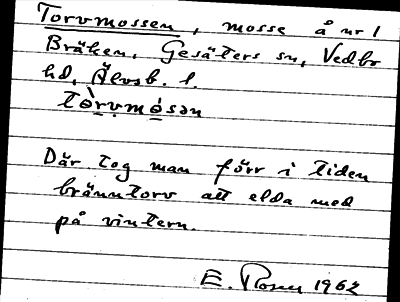 Torvmossen, mosse å nr 1
Bräken, Gesäters sn, Vedbo
hd, Älvsb. l.
tò̤rv̤mó̲sən
Där tog man förr i tiden
bränntorv att elda med
på vintern.
E. 1962